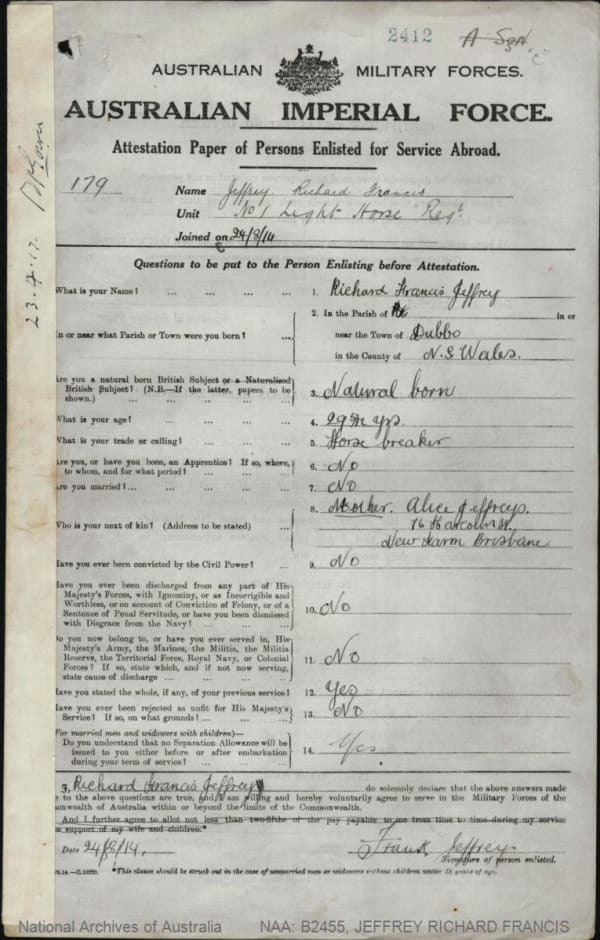 2412
AUSTRALIAN MILITARY FORCES.
AUSTRALIAN IMPERIAL FORCE.
Attestation Paper of Persons Enlisted for Service Abroad.
179
Name Jeffrey Richard Francis
Unit No 1 Light Horse Regt.
Joined on 24/8/14
23.4.17.
Questions to be put to the Person Enlisting before Attestation.
What is your Name? ... ... ... ... 1. Richard Francis Jeffrey
In or near what Parish or Town were you born? ... 2. In the Parish of in or
near the Town of Dubbo
in the County of N.S Wales.
Are you a natural born British Subject or a Naturalised
British Subject? (N.B.—If the latter, papers to be
shown.) ... ... ... ... 3. Natural born
What is your age? ... ... ... ... 4. yrs.
What is your trade or calling? ... ... ... 5. Horse breaker
Are you, or have you been, an Apprentice? If so, where,
to whom, and for what period? ... ... ... 6. No
Are you married?... ... ... ... ... 7. No
Who is your next of kin? (Address to be stated) ... 8. Mother. Alice Jeffreys.
76 Harcourt St.
New Farm Brisbane
Have you ever been convicted by the Civil Power? ... 9. No
Have you ever been discharged from any part of His
Majesty's Forces, with Ignominy, or as Incorrigible and
Worthless, or on account of Conviction of Felony, or of a
Sentence of Penal Servitude, or have you been dismissed
with Disgrace from the Navy? ... ... ... 10. No
Do you now belong to, or have you ever served in, His
Majesty's Army, the Marines, the Militia, the Militia
Reserve, the Territorial Force, Royal Navy, or Colonial
Forces? If so, state which, and if not now serving,
state cause of discharge ... ... ... ... 11. No
Have you stated the whole, if any, of your previous service? 12. Yes
Have you ever been rejected as unfit for His Majesty's
Service? If so, on what grounds? ... ... ... 13. No
(For married men and widowers with children)—
Do you understand that no Separation Allowance will be
issued to you either before or after embarkation
during your term of service? ... ... ... 14. Yes
I, Richard Francis Jeffrey do solemnly declare that the above answers made
to the above questions are true, and I am willing and hereby voluntarily agree to serve in the Military Forces of the
Commonwealth of Australia within or beyond the limits of the Commonwealth.
And I further agree to allot not less than two-fifths of the pay payable to me from time to time during my service
in support of my wife and children.*
Date 24/8/14. Frank Jeffrey
Signature of person enlisted.
*This clause should be struck out in the case of unmarried men or widowers without children under 18 years of age.
National Archives of Australia NAA: B2455, JEFFREY RICHARD FRANCIS